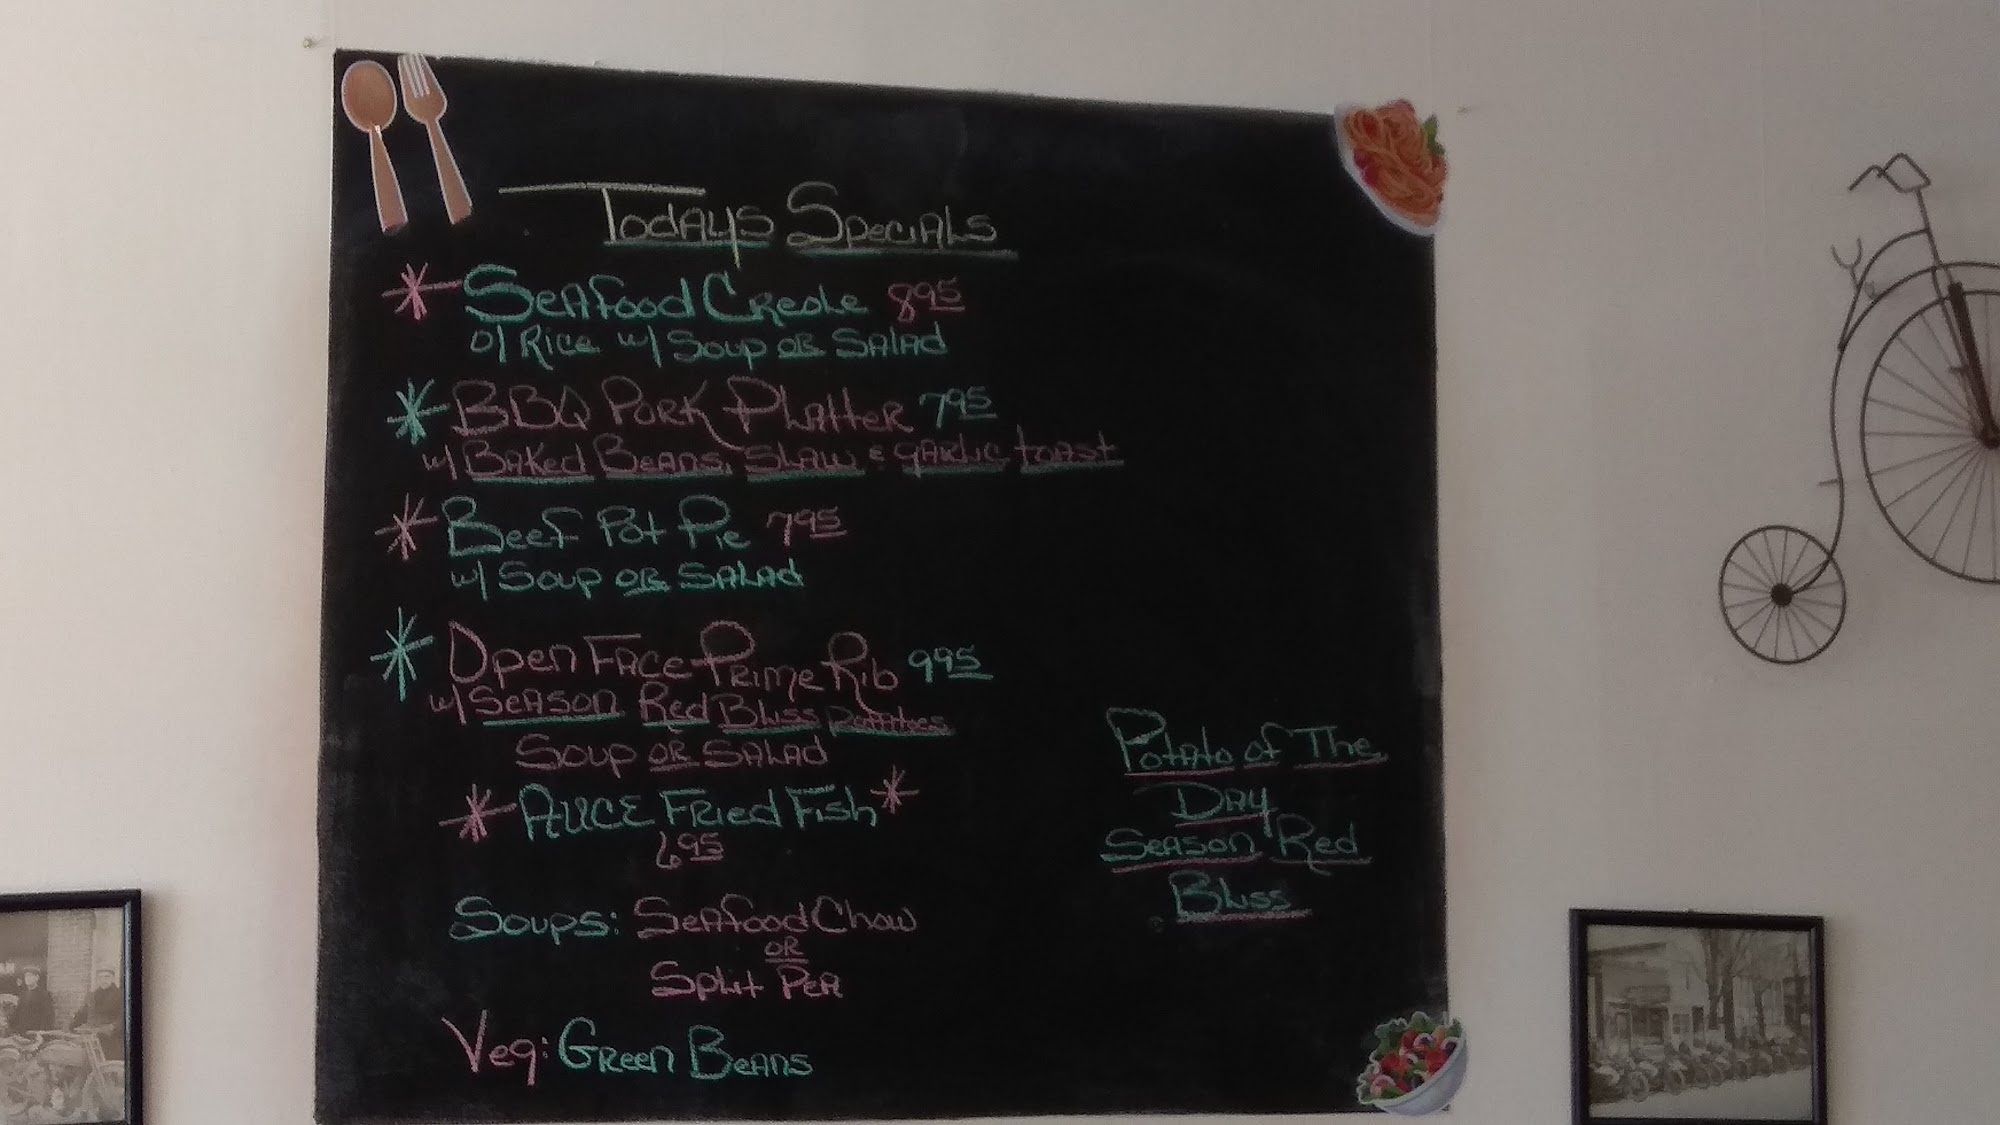 Todays Specials
* Seafood Creole 8 95
o/ Rice w/ Soup or Salad
* BBQ Pork Platter 7 95
w/ Baked Beans, Slaw & garlic toast
* Beef Pot Pie 7 95
w/ Soup or Salad
* Open Face Prime Rib 9 95
w/ Season Red Bliss Potatoes
Soup or Salad
* AUCE Fried Fish *
6 95
Soups: Seafood Chow
or
Split Pea
Veg: Green Beans
Potato of The
Day
Season Red
Bliss